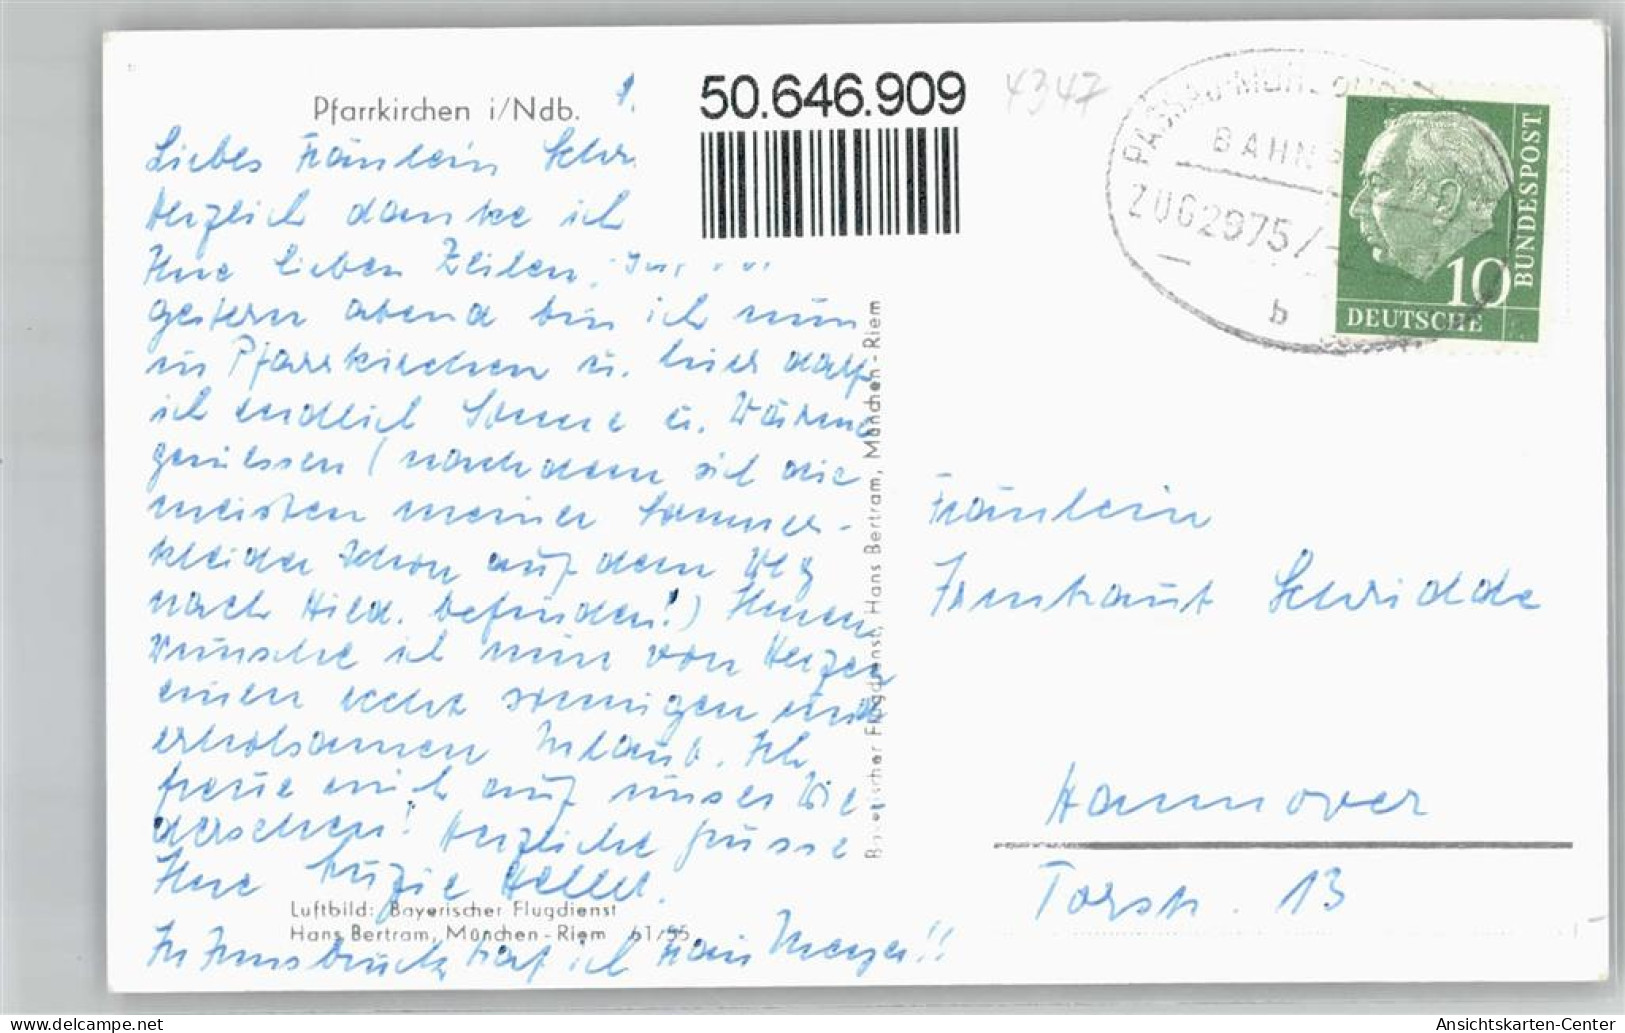 Pfarrkirchen i/Ndb.
50.646.909
4347
PASSAU-MÜHLDORF
BAHNPOST
ZUG2975/
b
BUNDESPOST
10
DEUTSCHE
Liebes Fräulein Schr.
Herzlich danke ich
Ihre lieben Zeilen,
gestern abend bin ich nun
in Pfarrkirchen u. hier darf
ich endlich Sonne u. Wärme
geniessen (nachdem sich die
meisten meiner Sommer-
kleider schon auf dem Weg
nach Hild. befinden!) Ihnen
wünsche ich nun von Herzen
einen recht sonnigen und
erholsamen Urlaub. Ich
freue mich auf unser Wie-
dersehen! Herzliche Grüsse
Ihre Luzie Heller.
In Innsbruck traf ich Frau Meyer!!
Luftbild: Bayerischer Flugdienst
Hans Bertram, München-Riem 61/55
Bayerischer Flugdienst, Hans Bertram, München-Riem
Fräulein
Irmtraut Schridde
Hannover
Torstr. 13
delcampe.net
Ansichtskarten-Center